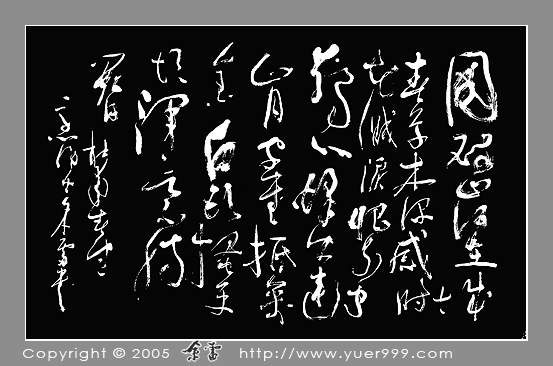 國破山河在城
春草木深感時
花濺淚恨別鳥
驚心烽火連
三月家書抵萬
金白頭搔更
短渾欲不勝
簪 杜甫春望
Copyright © 2005 余雷 http://www.yuer999.com